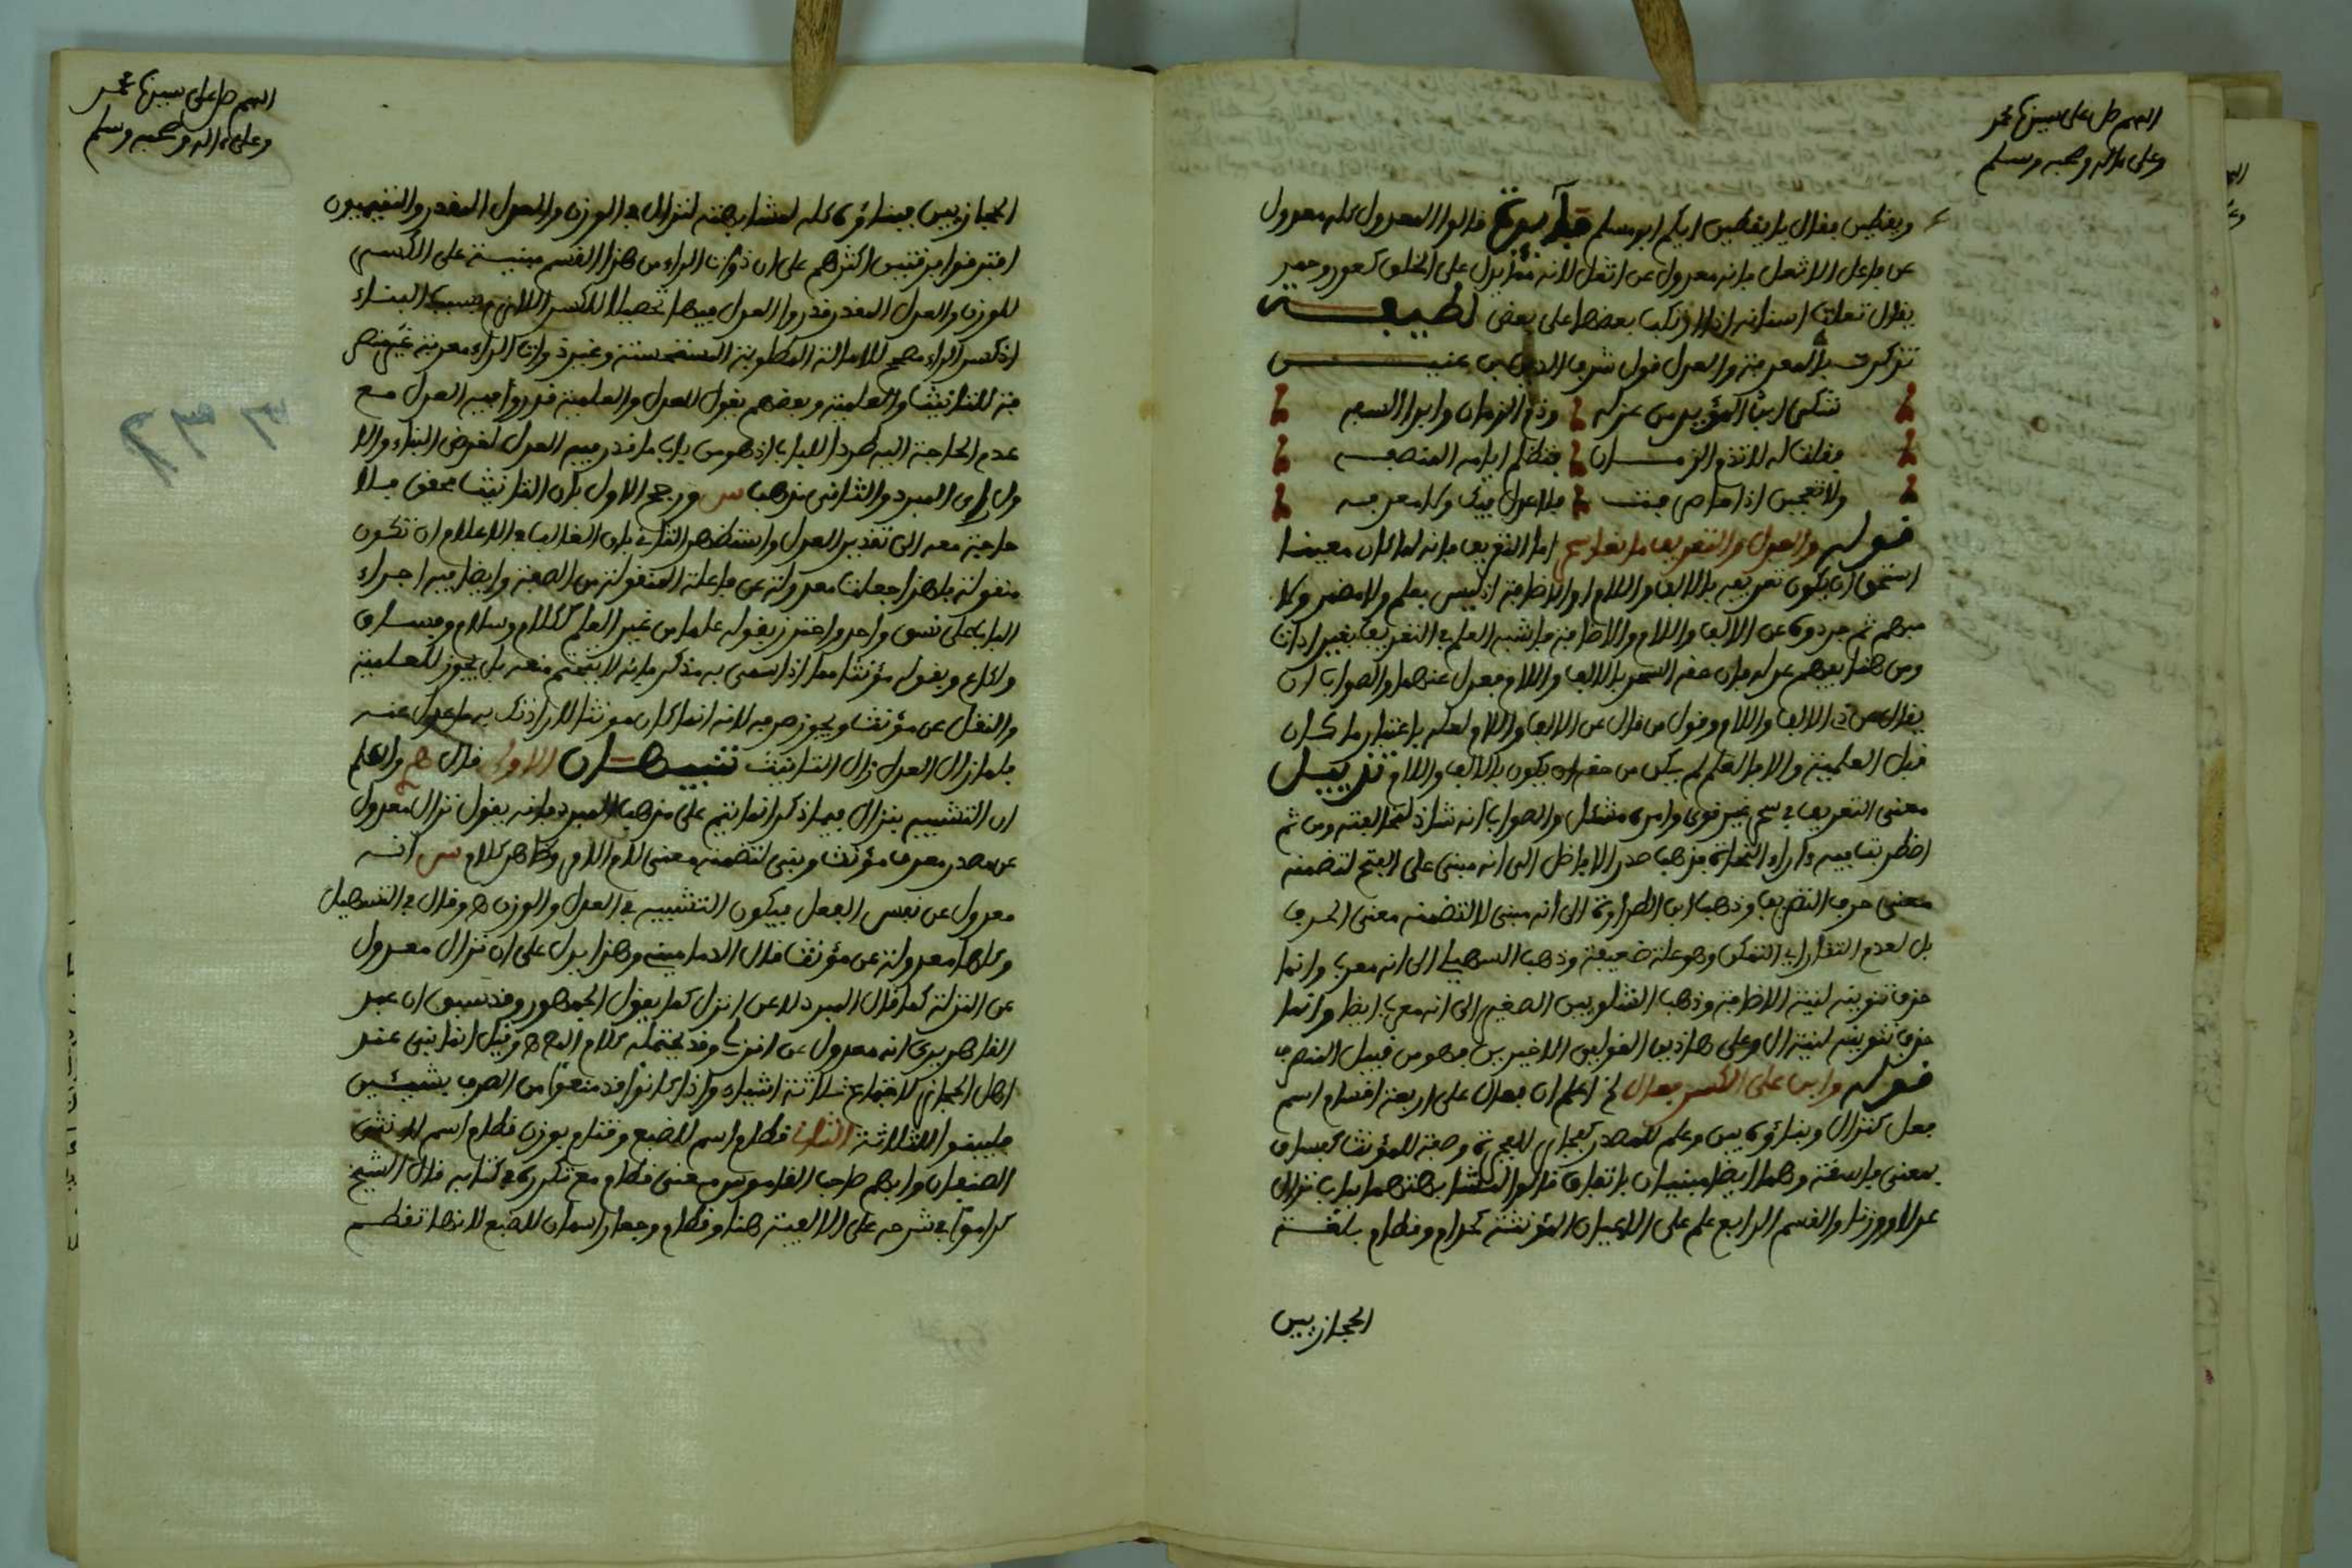 اللهم صل على سيدنا محمد
وعلى ءاله وصحبه وسلم
ويقطين فقال يا يقطين ايكم ابو مسلم فائدة قالوا المعدول كله معدول
عن فاعل الا ثعل فانه معدول عن اثعل لانه يدل على الخلق كعور وحمر
يقال تعلت اسنانه اذا ركب بعضها على بعض لطيفة
تذكرت بالمعرفة والعدل قول شرف الدين بن عنين
شكى ابن المؤيد من عزله وذم الزمان وابدا السفه
فقلت له لا تذم الزمان فتظلم ايامه المنصفه
ولا تعجبن اذا ما صرفت فلا عدل فيك ولا معرفه
قوله والعدل والتعريف مانعا سحر اما التعريف فانه لما كان معينا
استحق ان يكون تعريفه بالالف واللام او الاضافة اذ ليس بعلم ولا مضمر ولا
مبهم ثم جردوه عن الالف واللام والاضافة فاشبه العلم في التعريف بغير اداة
ومن هنا يفهم عدله فان حقه السحر بالالف واللام فعدل عنهما والصواب ان
يقال عن ذي الالف واللام وقول من قال عن الالف واللام لعله باعتبار ما كان
قبل العلمية والا فالعلم لم يكن من حقه ان يكون بالالف واللام تذييل
معنى التعريف في سحر غير قوي وامره مشكل والصواب انه شاذ لمخالفته ومن ثم
اضطربت فيه ءاراء النحاة فذهب صدر الافاضل الى انه مبني على الفتح لتضمنه
معنى حرف التعريف وذهب ابن الطراوة الى انه مبني لا لتضمنه معنى الحرف
بل لعدم التقار اي التمكن وهو علة ضعيفة وذهب السهيلي الى انه معرب وانما
حذف تنوينه لنية الاضافة وذهب الشلوبين الصغير الى انه معرب ايضا وانما
حذف تنوينه لنية ال وعلى هاذين القولين الاخيرين فهو من قبيل المنصرف
قوله وابن على الكسر فعال الخ اعلم ان فعال على اربعة اقسام اسم
فعل كنزال وبناؤه بين وعلم للمصدر كفجار للفجرة وصفة للمؤنث كفساق
بمعنى فاسقة وهما ايضا مبنيان باتفاق قالوا لمشابهتهما باب نزال
عدلا ووزنا والقسم الرابع علم على الاعيان المؤنثة كحذام وقطام بلغة
الحجازيين
اللهم صل على سيدنا محمد
وعلى ءاله وصحبه وسلم
الحجازيين بناؤه كله لمشابهته لنزال في الوزن والعدل المقدر والتميميون
افترقوا فرقتين اكثرهم على ان ذوات الراء من هذا القسم مبنية على الكسر
للوزن والعدل المقدر قدروا العدل فيها تحصيلا للكسر اللازم بسبب البناء
اذ كسر الراء مصحح للامالة المطلوبة المستحسنة وغير ذوات الراء معربة غير منصر
فة للتانيث والعلمية وبعضهم يقول للعدل والعلمية قدروا فيه العدل مع
عدم الحاجة اليه طردا للباب اذ هو من باب ما قدر فيه العدل لغرض البناء والا
ول راي المبرد والثاني مذهب س ورجح الاول بان التانيث محقق فلا
حاجة معه الى تقدير العدل واستظهر الثاني بان الغالب في الاعلام ان تكون
منقولة فلهذا جعلت معدولة عن فاعلة المنقولة من الصفة وايضا فيه اجراء
الباب على نسق واحد واحترز بقوله علما من غير العلم ككلام وسلام وفساق
واكاع وبقوله مؤنثا مما اذا سمي به مذكر فانه لا يتحتم منعه بل يجوز للعلمية
والنقل عن مؤنث ويجوز صرفه لانه انما كان مونثا لارادتك به ما عدل عنه
فلما زال العدل زال التانيث تنبيهان الاول قال واعلم
ان التشبيه بنزال فيما ذكر انما يتم على مذهب المبرد فانه يقول نزال معدول
عن مصدر معرف مؤنث وبني لتضمنه معنى لام الامر وظاهر كلام س انه
معدول عن نفس الفعل فيكون التشبيه في العدل والوزن ه وقال في التسهيل
وكلها معدولة عن مؤنث قال الدماميني وهذا يدل على ان نزال معدول
عن النزلة كما قال المبرد لا عن انزل كما يقول الجمهور وقد سبق ان عبد
القاهر يرى انه معدول عن انزل وقد يحتمله كلام المص ه وقيل انما بني عند
اهل الحجاز لاجتماع ثلاثة اشياء واذا كانوا قد منعوا من الصرف بشيئين
فليبنوا للثلاثة الثاني قطام اسم للضبع وقثام بوزن قطام اسم لانثى
الضبعان وابهم صاحب القاموس معنى قطام مع تكرره في كتابه قال الشيخ
كراموا في شرحه على الالفية هنا وقطام وجعار اسمان للضبع لانها تقطم